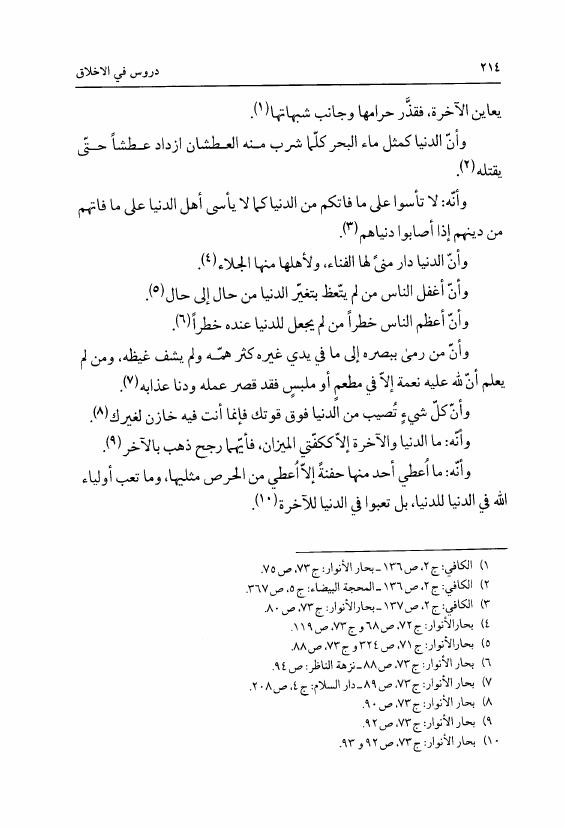 ٢١٤ دروس في الاخلاق
يعاين الآخرة، فقذَّر حرامها وجانب شبهاتها(١).
وأنّ الدنيا كمثل ماء البحر كلّما شرب منه العطشان ازداد عطشاً حتّى
يقتله(٢).
وأنّه: لا تأسوا على ما فاتكم من الدنيا كما لا يأسى أهل الدنيا على ما فاتهم
من دينهم إذا أصابوا دنياهم(٣).
وأنّ الدنيا دار منىً لها الفناء، ولأهلها منها الجلاء(٤).
وأنّ أغفل الناس من لم يتّعظ بتغيّر الدنيا من حال إلى حال(٥).
وأنّ أعظم الناس خطراً من لم يجعل للدنيا عنده خطراً(٦).
وأنّ من رمىٰ ببصره إلى ما في يدي غيره كثر همّه ولم يشف غيظه، ومن لم
يعلم أنّ لله عليه نعمة إلاّ في مطعمٍ أو ملبسٍ فقد قصر عمله ودنا عذابه(٧).
وأنّ كلّ شيءٍ تُصيب من الدنيا فوق قوتك فإنما أنت فيه خازن لغيرك(٨).
وأنّه: ما الدنيا والآخرة إلاّ ككفّتي الميزان، فأيّهما رجح ذهب بالآخر(٩).
وأنّه: ما اُعطي أحد منها حفنةً إلاّ اُعطي من الحرص مثليها، وما تعب أولياء
الله في الدنيا للدنيا، بل تعبوا في الدنيا للآخرة(١٠).
١) الكافي: ج٢، ص١٣٦ ـ بحار الأنوار: ج٧٣، ص٧٥.
٢) الكافي: ج٢، ص١٣٦ ـ المحجة البيضاء: ج٥، ص٣٦٧.
٣) الكافي: ج٢، ص١٣٧ ـ بحار الأنوار: ج٧٣، ص٨٠.
٤) بحار الأنوار: ج٧٢، ص٦٨ و ج٧٣، ص١١٩.
٥) بحار الأنوار: ج٧١، ص٣٢٤ و ج٧٣، ص٨٨.
٦) بحار الأنوار: ج٧٣، ص٨٨ ـ نزهة الناظر: ص٩٤.
٧) بحار الأنوار: ج٧٣، ص٨٩ ـ دار السلام: ج٤، ص٢٠٨.
٨) بحار الأنوار: ج٧٣، ص٩٠.
٩) بحار الأنوار: ج٧٣، ص٩٢.
١٠) بحار الأنوار: ج٧٣، ص٩٢ و ٩٣.